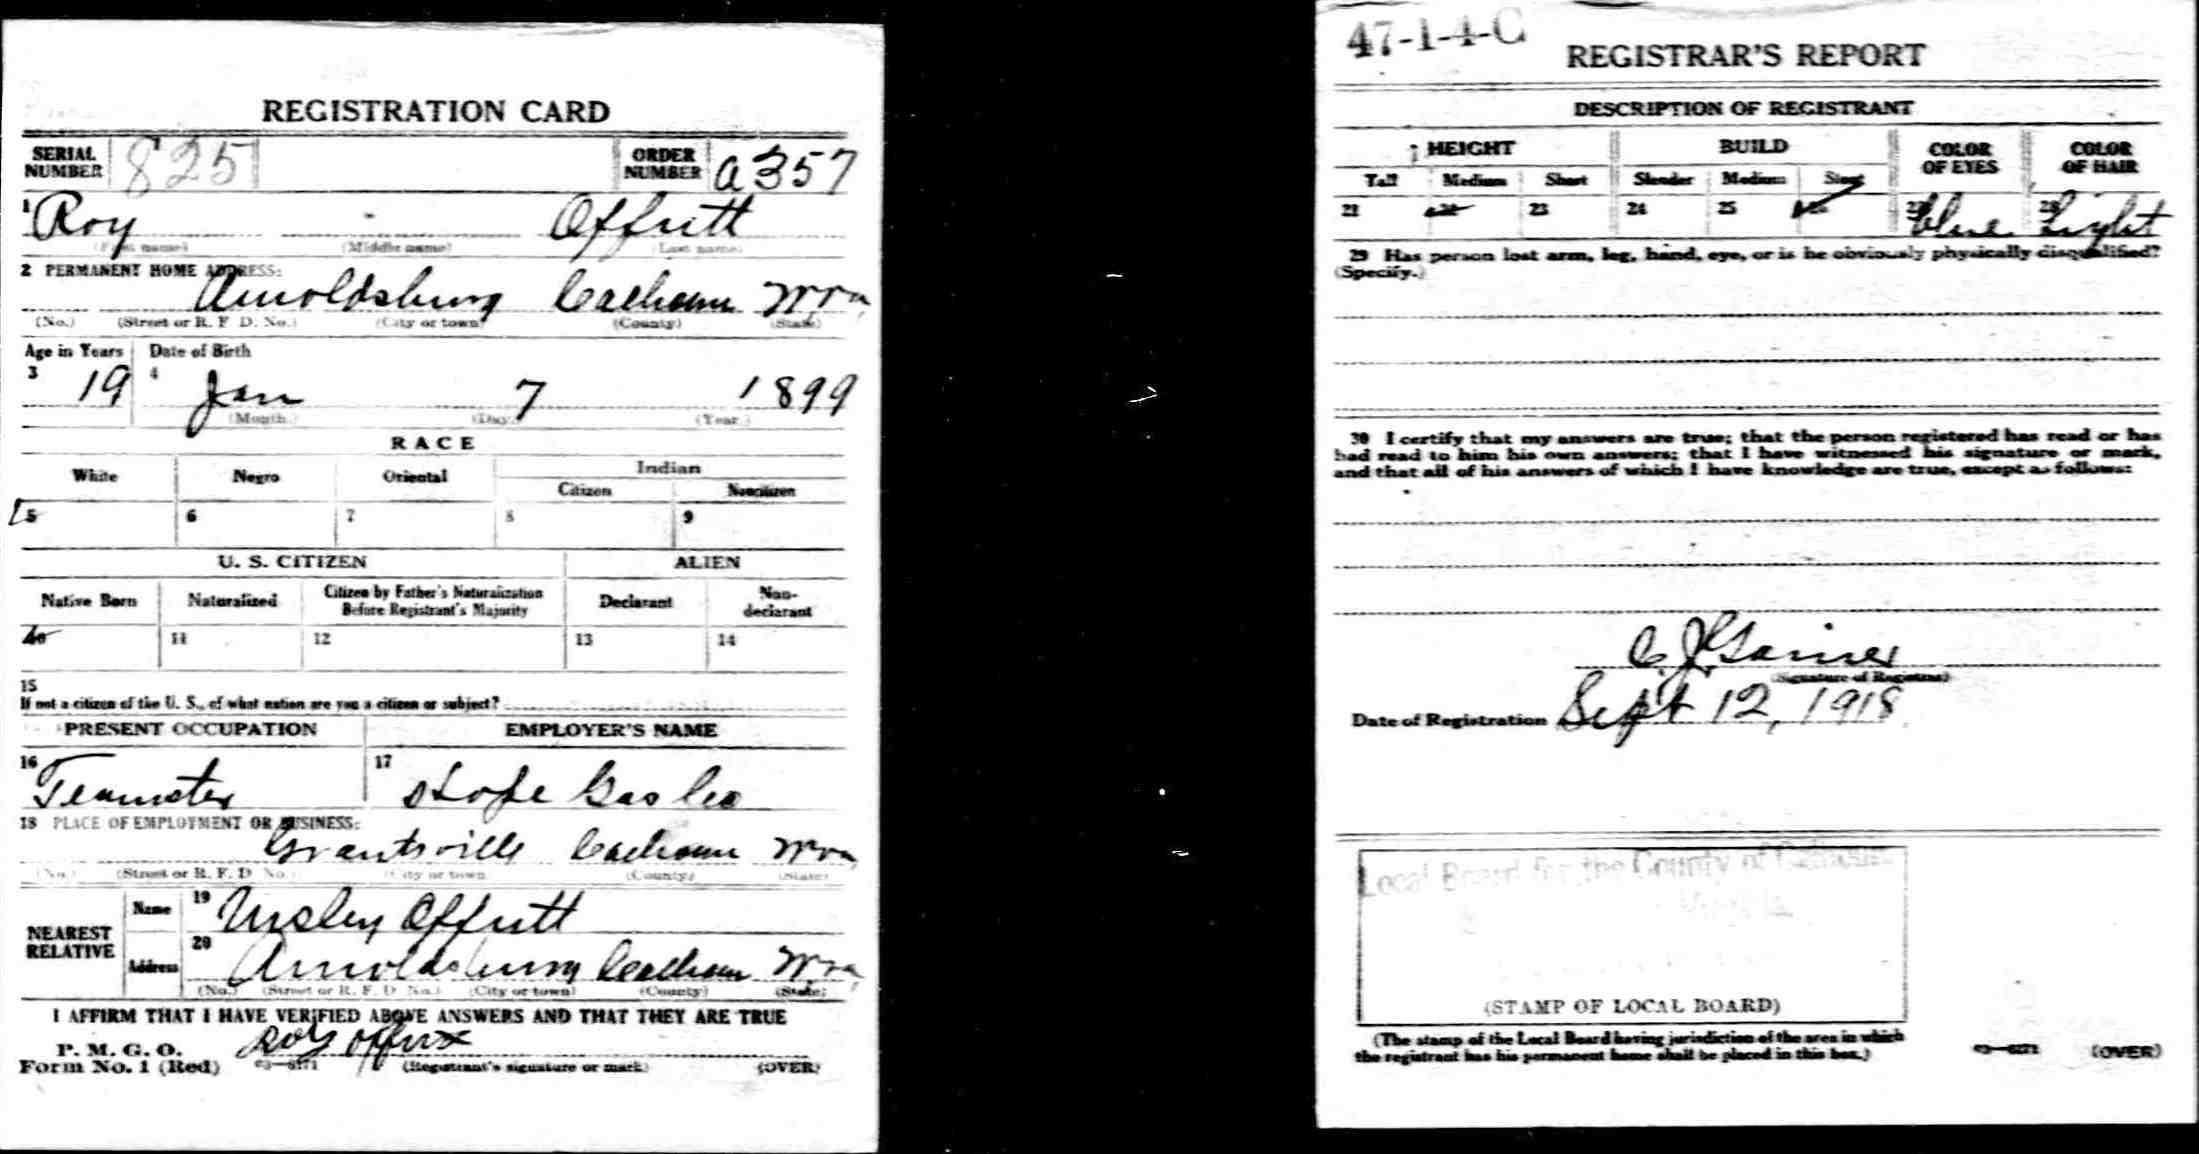 REGISTRATION CARD
SERIAL NUMBER 825 ORDER NUMBER a357
1 Roy - Offutt
(First name) (Middle name) (Last name)
2 PERMANENT HOME ADDRESS:
Arnoldsburg Calhoun W Va
(No.) (Street or R. F. D. No.) (City or town) (County) (State)
Age in Years Date of Birth
3 19 4 Jan 7 1899
(Month.) (Day.) (Year.)
RACE
White Negro Oriental Indian
Citizen Noncitizen
5 6 7 8 9
U. S. CITIZEN ALIEN
Native Born Naturalized Citizen by Father's Naturalization Before Registrant's Majority Declarant Non-declarant
10 11 12 13 14
15
If not a citizen of the U. S., of what nation are you a citizen or subject?
PRESENT OCCUPATION EMPLOYER'S NAME
16 Teamster 17 Hope Gas Co
18 PLACE OF EMPLOYMENT OR BUSINESS:
Grantsville Calhoun W Va
(No.) (Street or R. F. D. No.) (City or town) (County) (State)
NEAREST RELATIVE
Name 19 Offutt
Address 20 Arnoldsburg Calhoun W Va
(No.) (Street or R. F. D. No.) (City or town) (County) (State)
I AFFIRM THAT I HAVE VERIFIED ABOVE ANSWERS AND THAT THEY ARE TRUE
P. M. G. O.
Form No. 1 (Red) 03—6171 Roy Offutt
(Registrant's signature or mark) (OVER)
47-1-4-C
REGISTRAR'S REPORT
DESCRIPTION OF REGISTRANT
HEIGHT BUILD COLOR OF EYES COLOR OF HAIR
Tall Medium Short Slender Medium Stout
21 22 23 24 25 26 27 Blue 28 Light
29 Has person lost arm, leg, hand, eye, or is he obviously physically disqualified?
(Specify.)
30 I certify that my answers are true; that the person registered has read or has
had read to him his own answers; that I have witnessed his signature or mark,
and that all of his answers of which I have knowledge are true, except as follows:
C. J. Gainer
(Signature of Registrar)
Date of Registration Sept 12, 1918
Local Board for the County of Calhoun
(STAMP OF LOCAL BOARD)
(The stamp of the Local Board having jurisdiction of the area in which
the registrant has his permanent home shall be placed in this box.)
03—6171 (OVER)